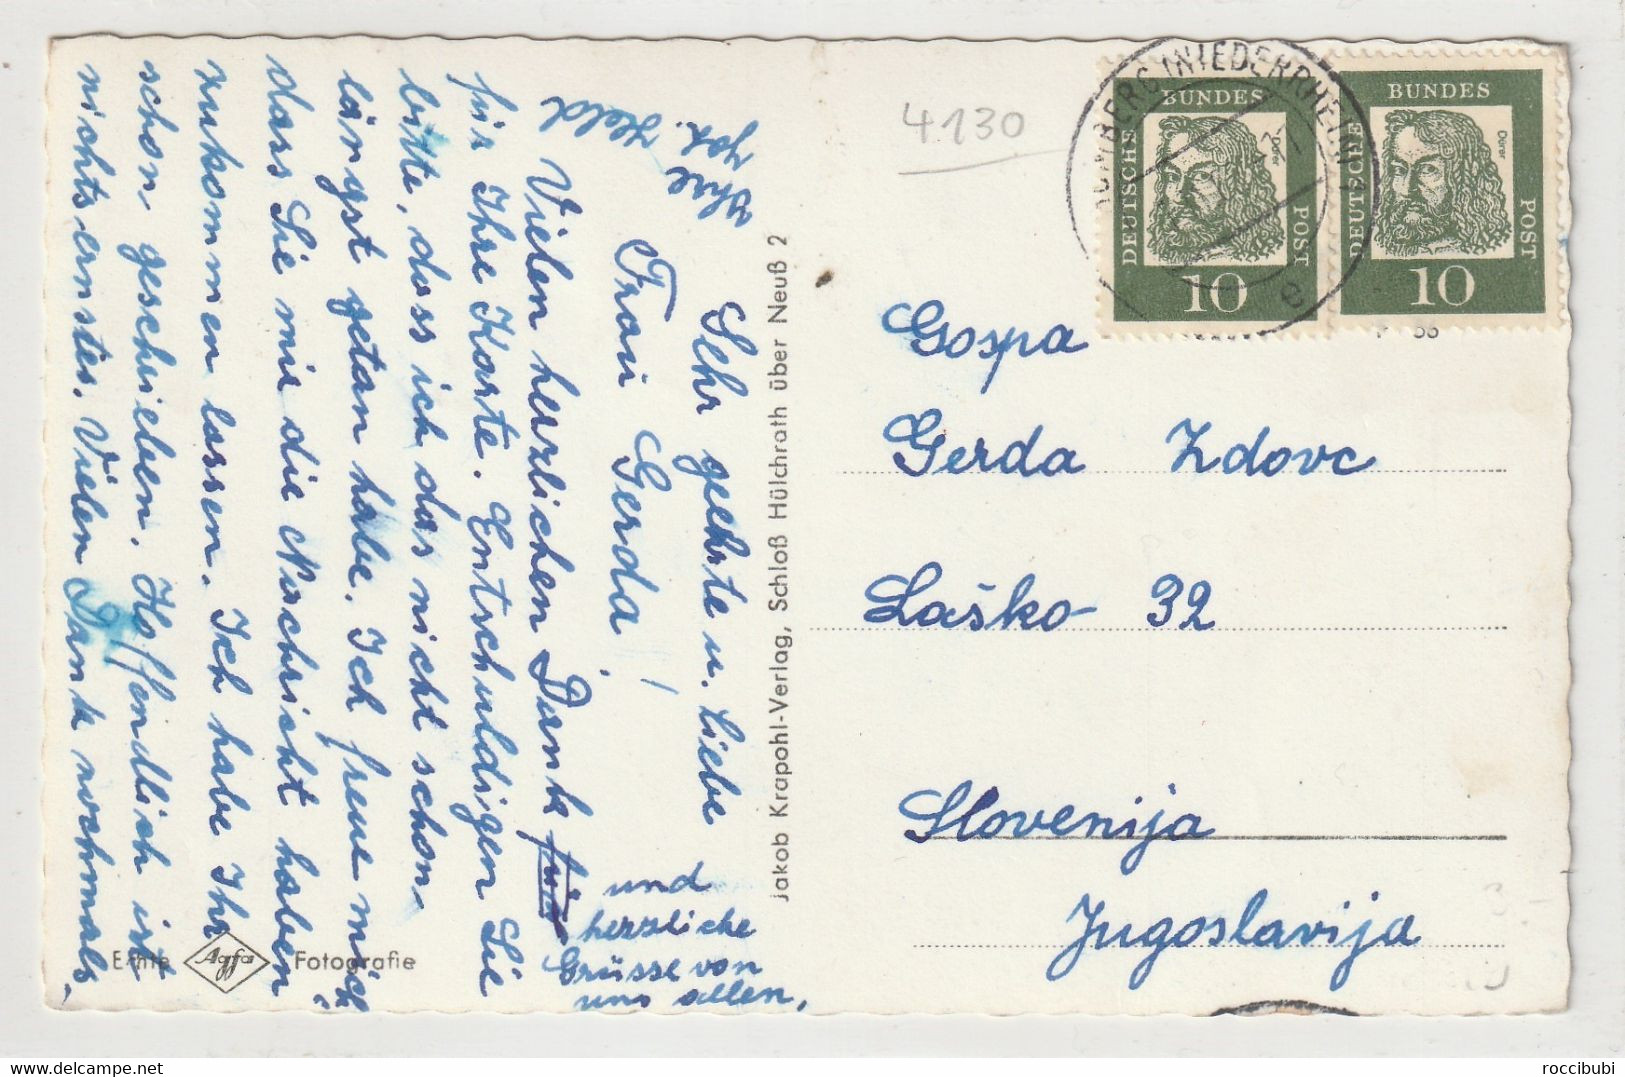 Sehr geehrte u. liebe
Frau Gerda!
Vielen herzlichen Dank für
für Ihre Karte. Entschuldigen Sie
bitte, dass ich das nicht schon
längst getan habe. Ich freue mich,
dass Sie mir die Nachricht haben
zukommen lassen. Ich habe Ihr
schon geschrieben. Hoffendlich ist
nichts ernstes. Vielen Dank nochmals,
und
herzliche
Grüsse von
uns allen,
Held
Jakob Krapohl-Verlag, Schloß Hülchrath über Neuß 2
Echte Agfa Fotografie
4130
BERG (NIEDERRHEIN)
e
DEUTSCHE
BUNDES
POST
Dürer
10
DEUTSCHE
BUNDES
POST
Dürer
10
Gospa
Gerda Zdovc
Laško 32
Slovenija
Jugoslavija
roccibubi